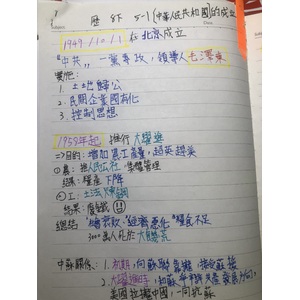 歷 8下 5-1 [中華人民共和國]的成立
1949/10/1 在北京成立
"中共" 一黨專政,領導人毛澤東
實施:
1. 土地歸公
2. 民間企業國有化
3. 控制思想
1958年起 推行大躍進
⇒目的:增加農工產量,超英趕美
農:推人民公社,集體管理
結果:糧產下降
工:土法煉鋼
結果:廢鐵
總結:經濟惡化,糧食不足
3000萬人死於大饑荒
中蘇關係:1.初期,向蘇聯靠攏,接受蘇援
2.大躍進時,
美國拉攏中國,一同抗蘇